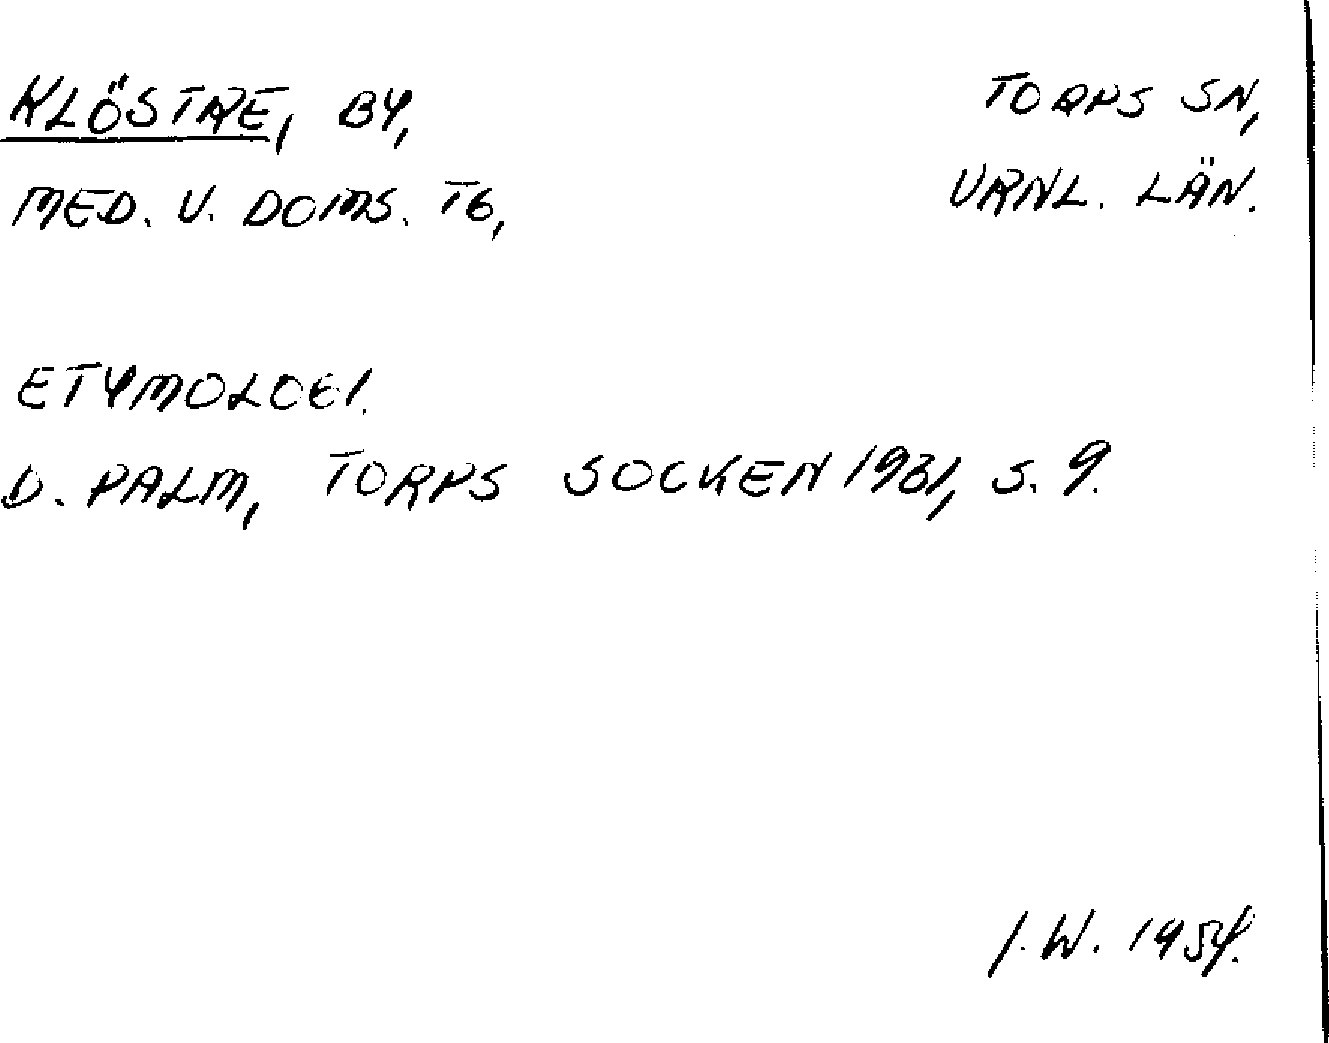 KLÖSTRE, BY, TORPS SN,
MED. V. DOMS. TG, VRNL. LÄN.
ETYMOLOGI.
D. PALM, TORPS SOCKEN 1931, S. 9.
J.W. 1954.